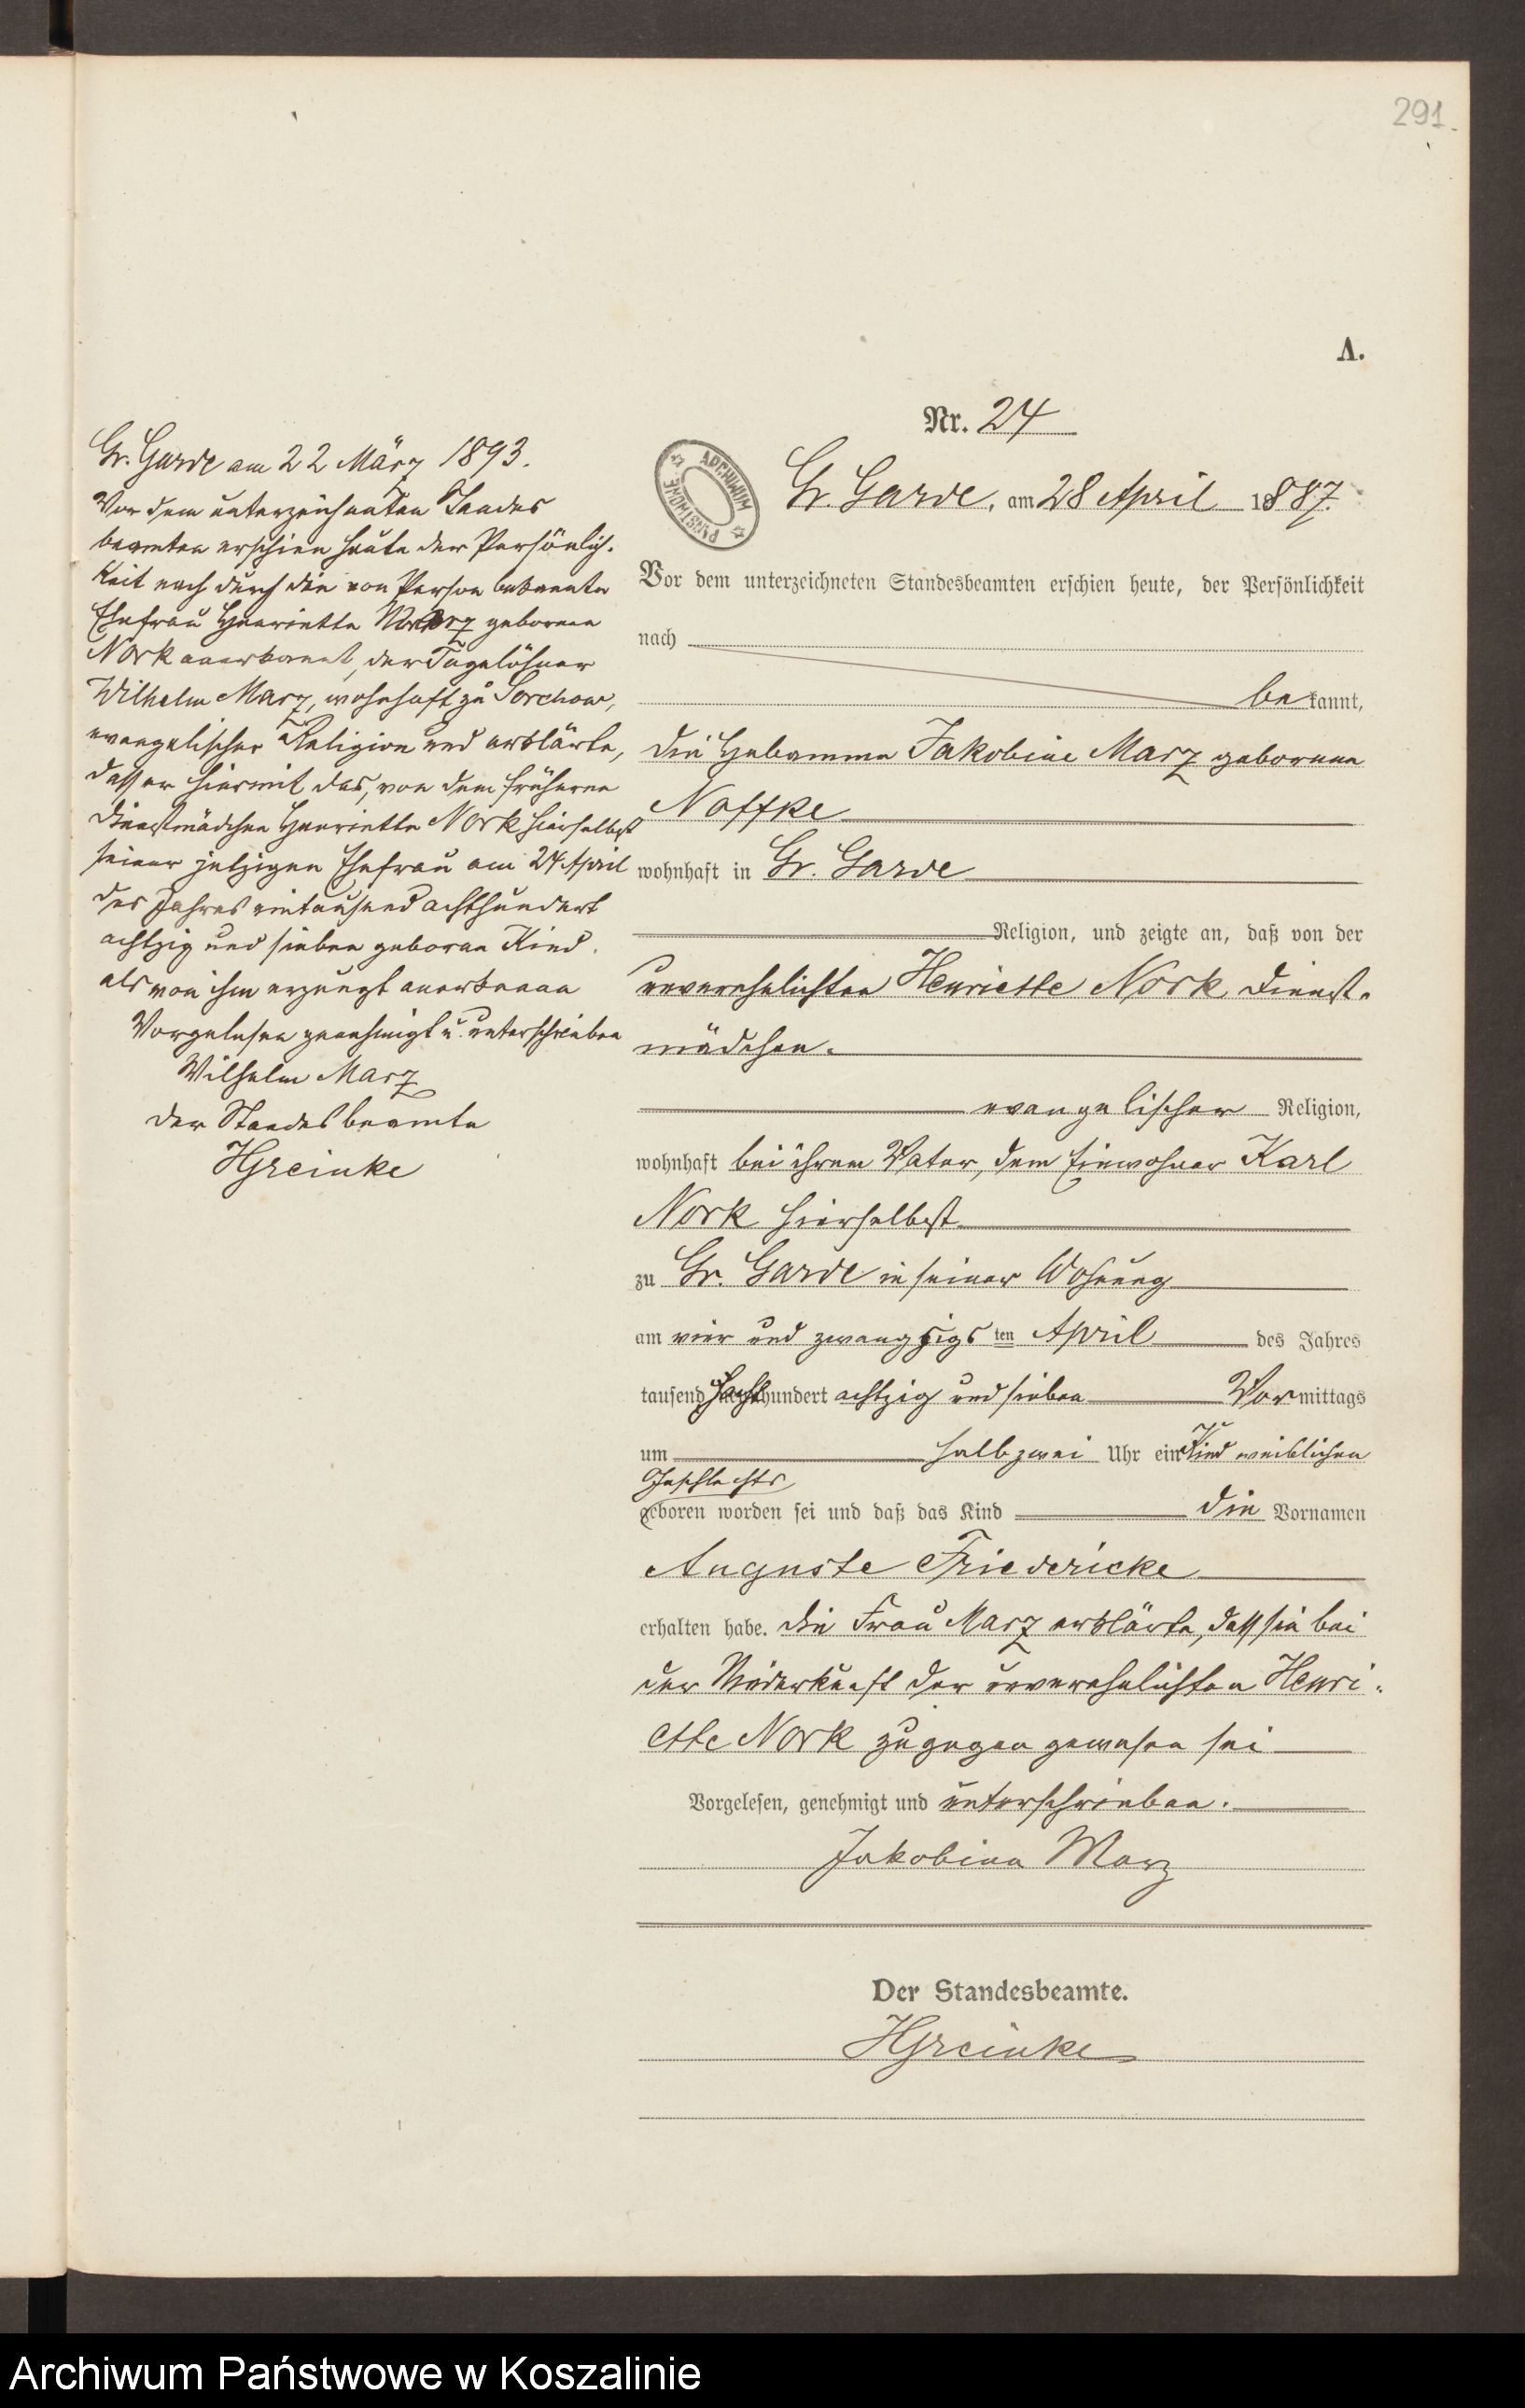 291.
A.
Nr. 24
ARCHIWUM PAŃSTWOWE
Gr. Garde, am 28 April 1887.
Vor dem unterzeichneten Standesbeamten erschien heute, der Persönlichkeit
nach
bekannt,
die Hebamme Jakobine Marz geborene
Noffke
wohnhaft in Gr. Garde
Religion, und zeigte an, daß von der
unverehelichten Henriette Nork Dienst-
mädchen.
evangelischer Religion,
wohnhaft bei ihrem Vater, dem Einwohner Karl
Nork hierselbst
zu Gr. Garde in seiner Wohnung
am vier und zwanzigsten April des Jahres
tausend acht hundert achtzig und sieben Vormittags
um halb zwei Uhr ein Kind weiblichen
Geschlechts
geboren worden sei und daß das Kind die Vornamen
Auguste Friedericke
erhalten habe. Die Frau Marz erklärte, daß sie bei
der Niederkunft der unverehelichten Henri-
ette Nork zugegen gewesen sei
Vorgelesen, genehmigt und unterschrieben.
Jakobine Marz
Der Standesbeamte.
HGreinke
Gr. Garde am 22 März 1893.
Vor dem unterzeichneten Standes
beamten erschien heute der Persönlich-
keit nach durch die von Person bekannte
Ehefrau Henriette Marz geborene
Nork anerkannt, der Tagelöhner
Wilhelm Marz, wohnhaft zu Sorchow,
evangelischer Religion und erklärte,
daß er hiermit das, von dem früheren
Dienstmädchen Henriette Nork hierselbst
seiner jetzigen Ehefrau am 24 April
des Jahres eintausend achthundert
achtzig und sieben geboren Kind
als von ihm erzeugt anerkenne
Vorgelesen genehmigt u. unterschrieben
Wilhelm Marz
Der Standesbeamte
HGreinke
Archiwum Państwowe w Koszalinie